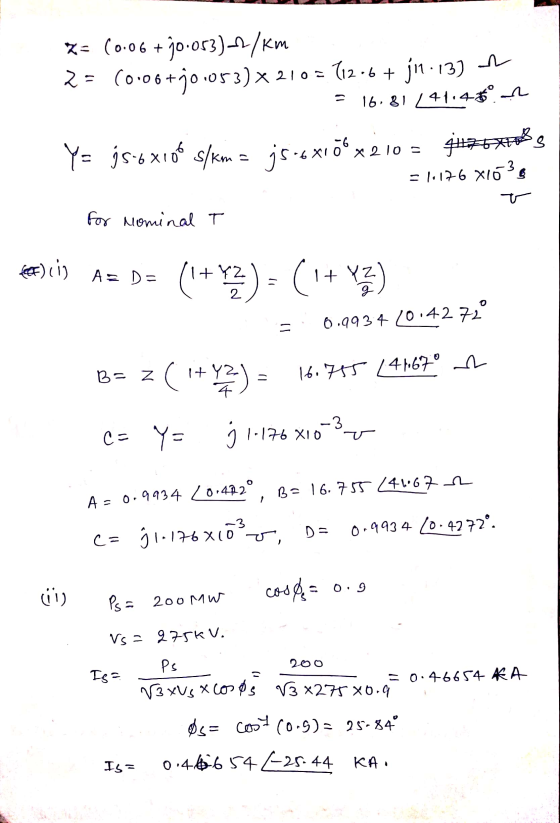 z = (0.06 + j0.053) Ω/km
Z = (0.06+j0.053) × 210 = (12.6 + j11.13) Ω
= 16.81 ∠41.45° Ω
Y = j5.6×10⁶ S/km = j5.6×10⁻⁶ × 210 =
= 1.176 ×10⁻³ ℧
for Nominal T
(i) A = D = (1 + YZ/2) = (1 + YZ/2)
= 0.9934 ∠0.4272°
B = Z (1 + YZ/4) = 16.755 ∠41.67° Ω
C = Y = j 1.176 ×10⁻³ ℧
A = 0.9934 ∠0.472°, B = 16.755 ∠41.67 Ω
C = j1.176×10⁻³ ℧, D = 0.9934 ∠0.4272°.
(ii) Ps = 200 MW cosϕs = 0.9
Vs = 275kV.
Is = Ps/(√3 × Vs × cosϕs) = 200/(√3 × 275 × 0.9) = 0.46654 KA
ϕs = cos⁻¹ (0.9) = 25.84°
Is = 0.46654 ∠-25.44 KA.